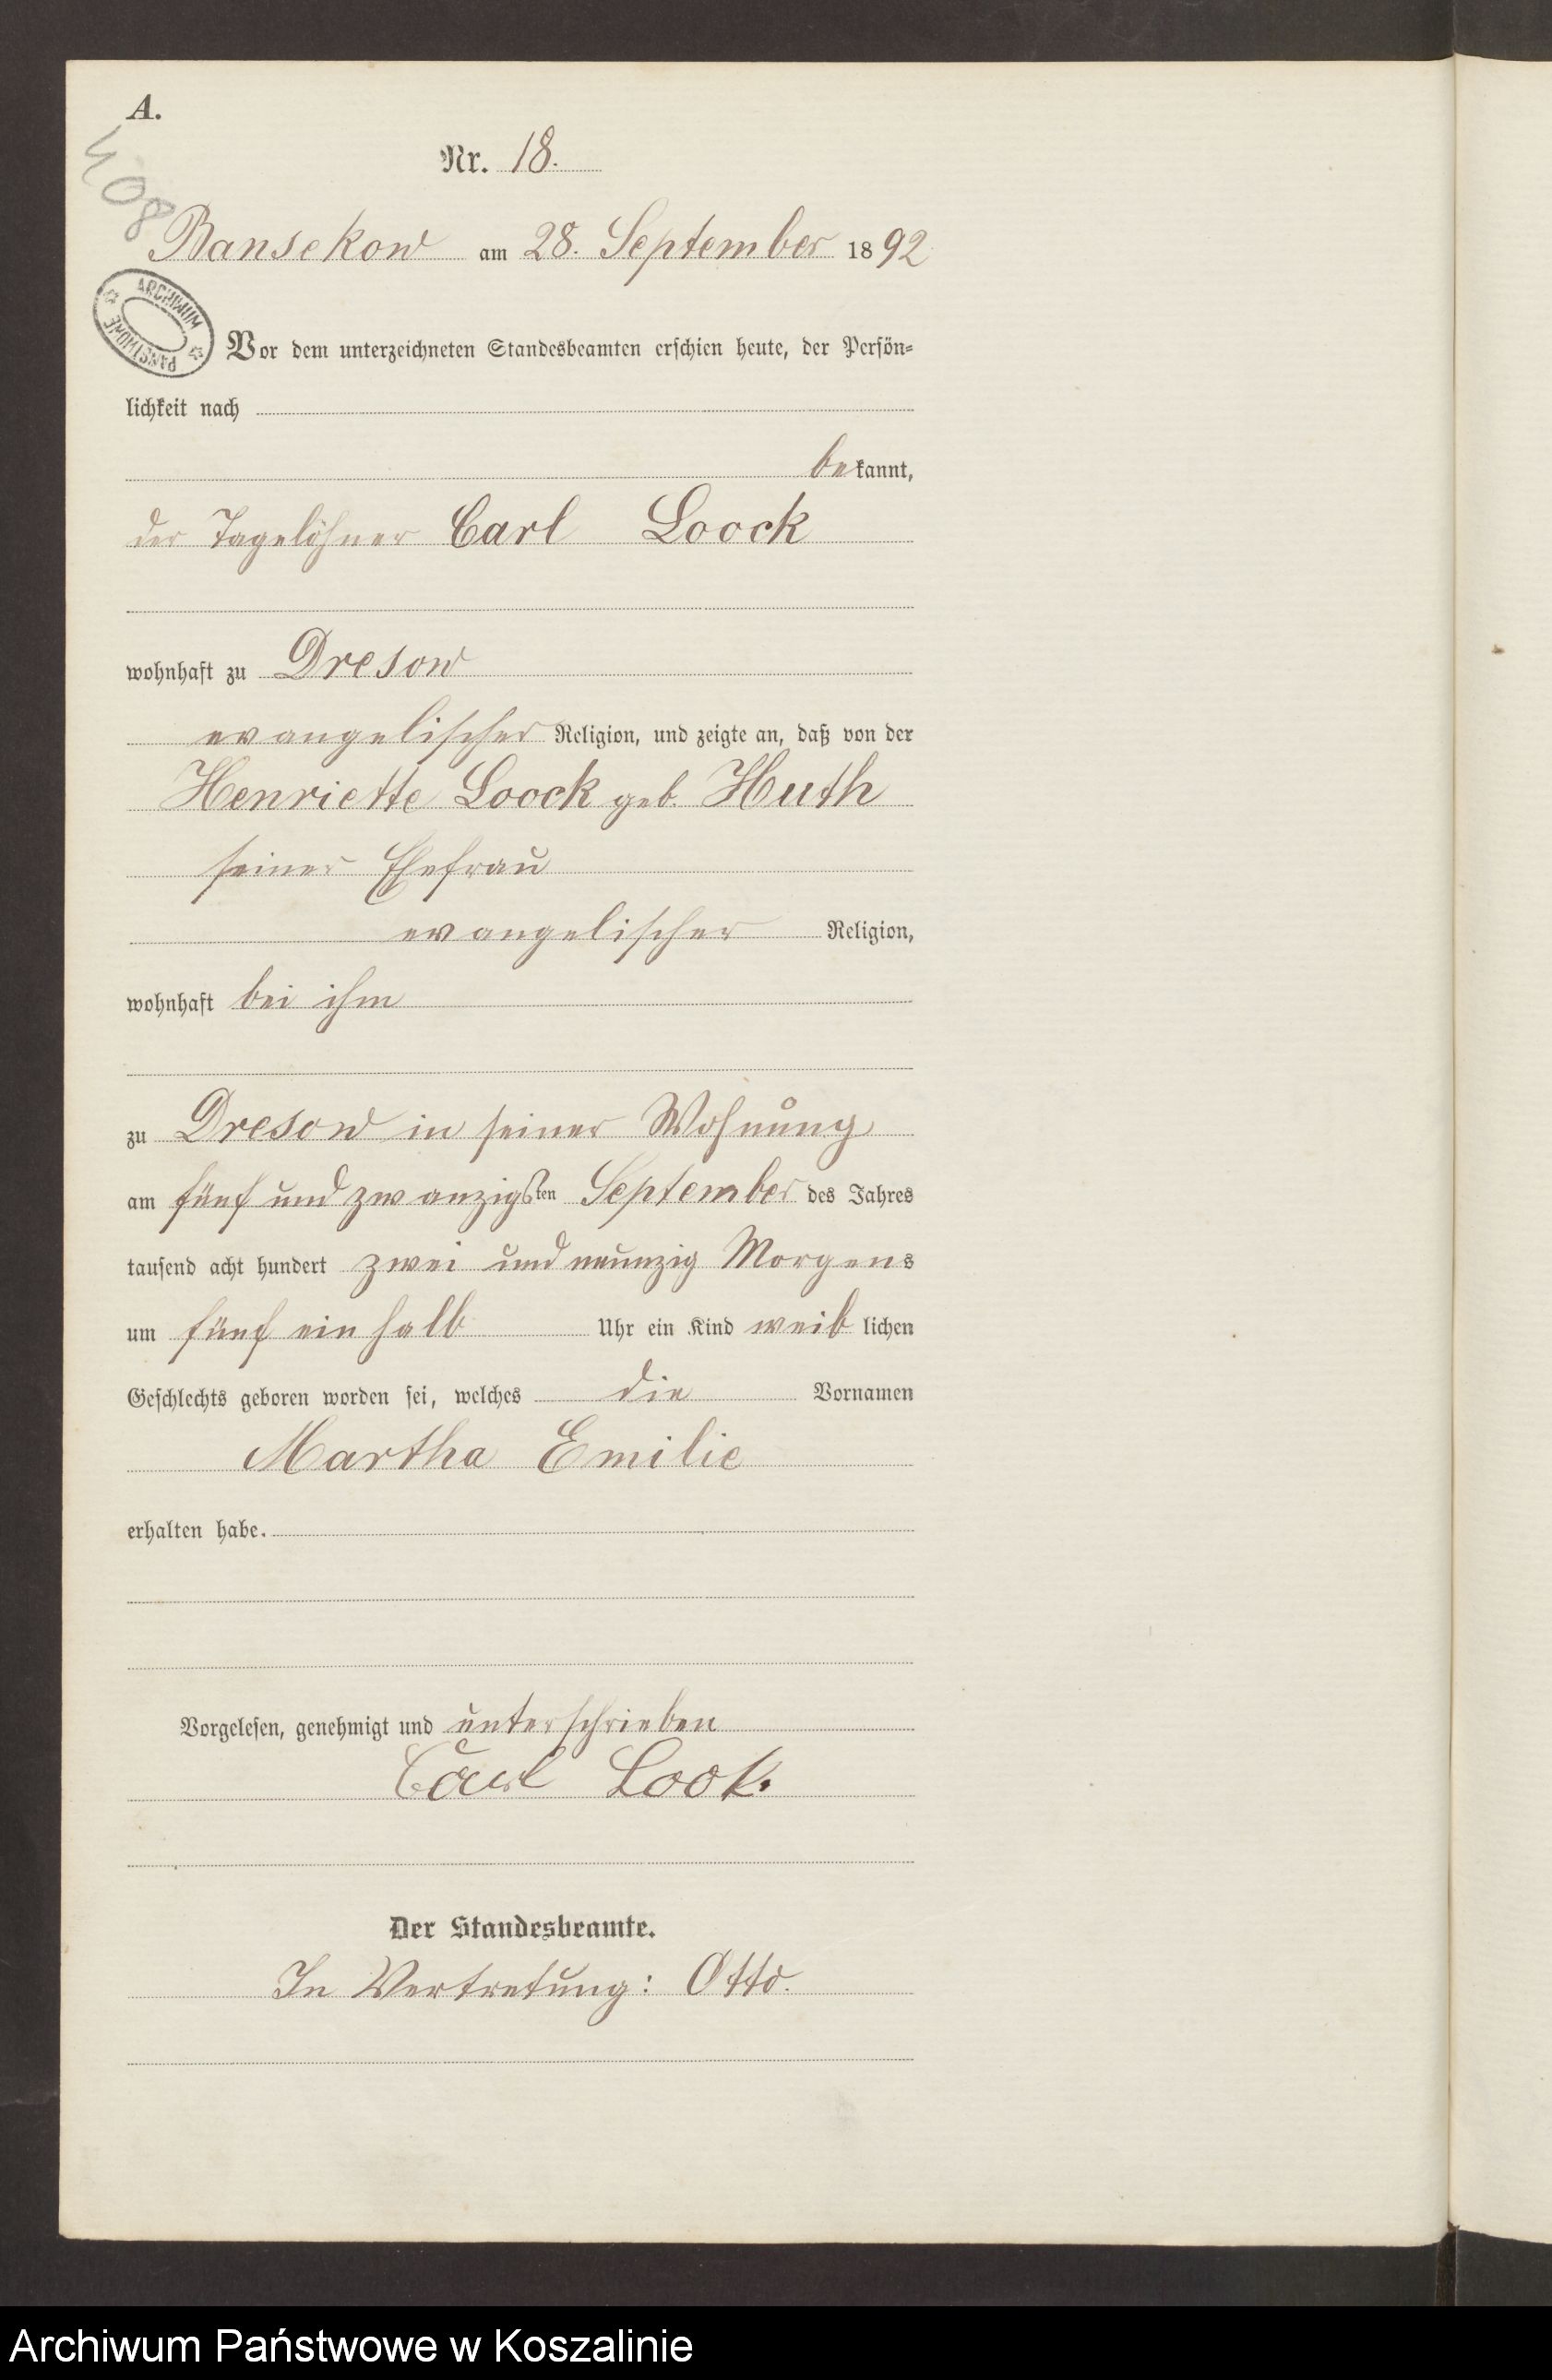 A.
408
Nr. 18.
Bansekow am 28. September 1892
ARCHIWUM PAŃSTWOWE
Vor dem unterzeichneten Standesbeamten erschien heute, der Persön-
lichkeit nach
bekannt,
der Tagelöhner Carl Loock
wohnhaft zu Dresow
evangelischer Religion, und zeigte an, daß von der
Henriette Loock geb. Huth
seiner Ehefrau
evangelischer Religion,
wohnhaft bei ihm
zu Dresow in seiner Wohnung
am fünf und zwanzigsten September des Jahres
tausend acht hundert zwei und neunzig Morgens
um fünf ein halb Uhr ein Kind weiblichen
Geschlechts geboren worden sei, welches die Vornamen
Martha Emilie
erhalten habe.
Vorgelesen, genehmigt und unterschrieben
Carl Look.
Der Standesbeamte.
In Vertretung: Otto.
Archiwum Państwowe w Koszalinie